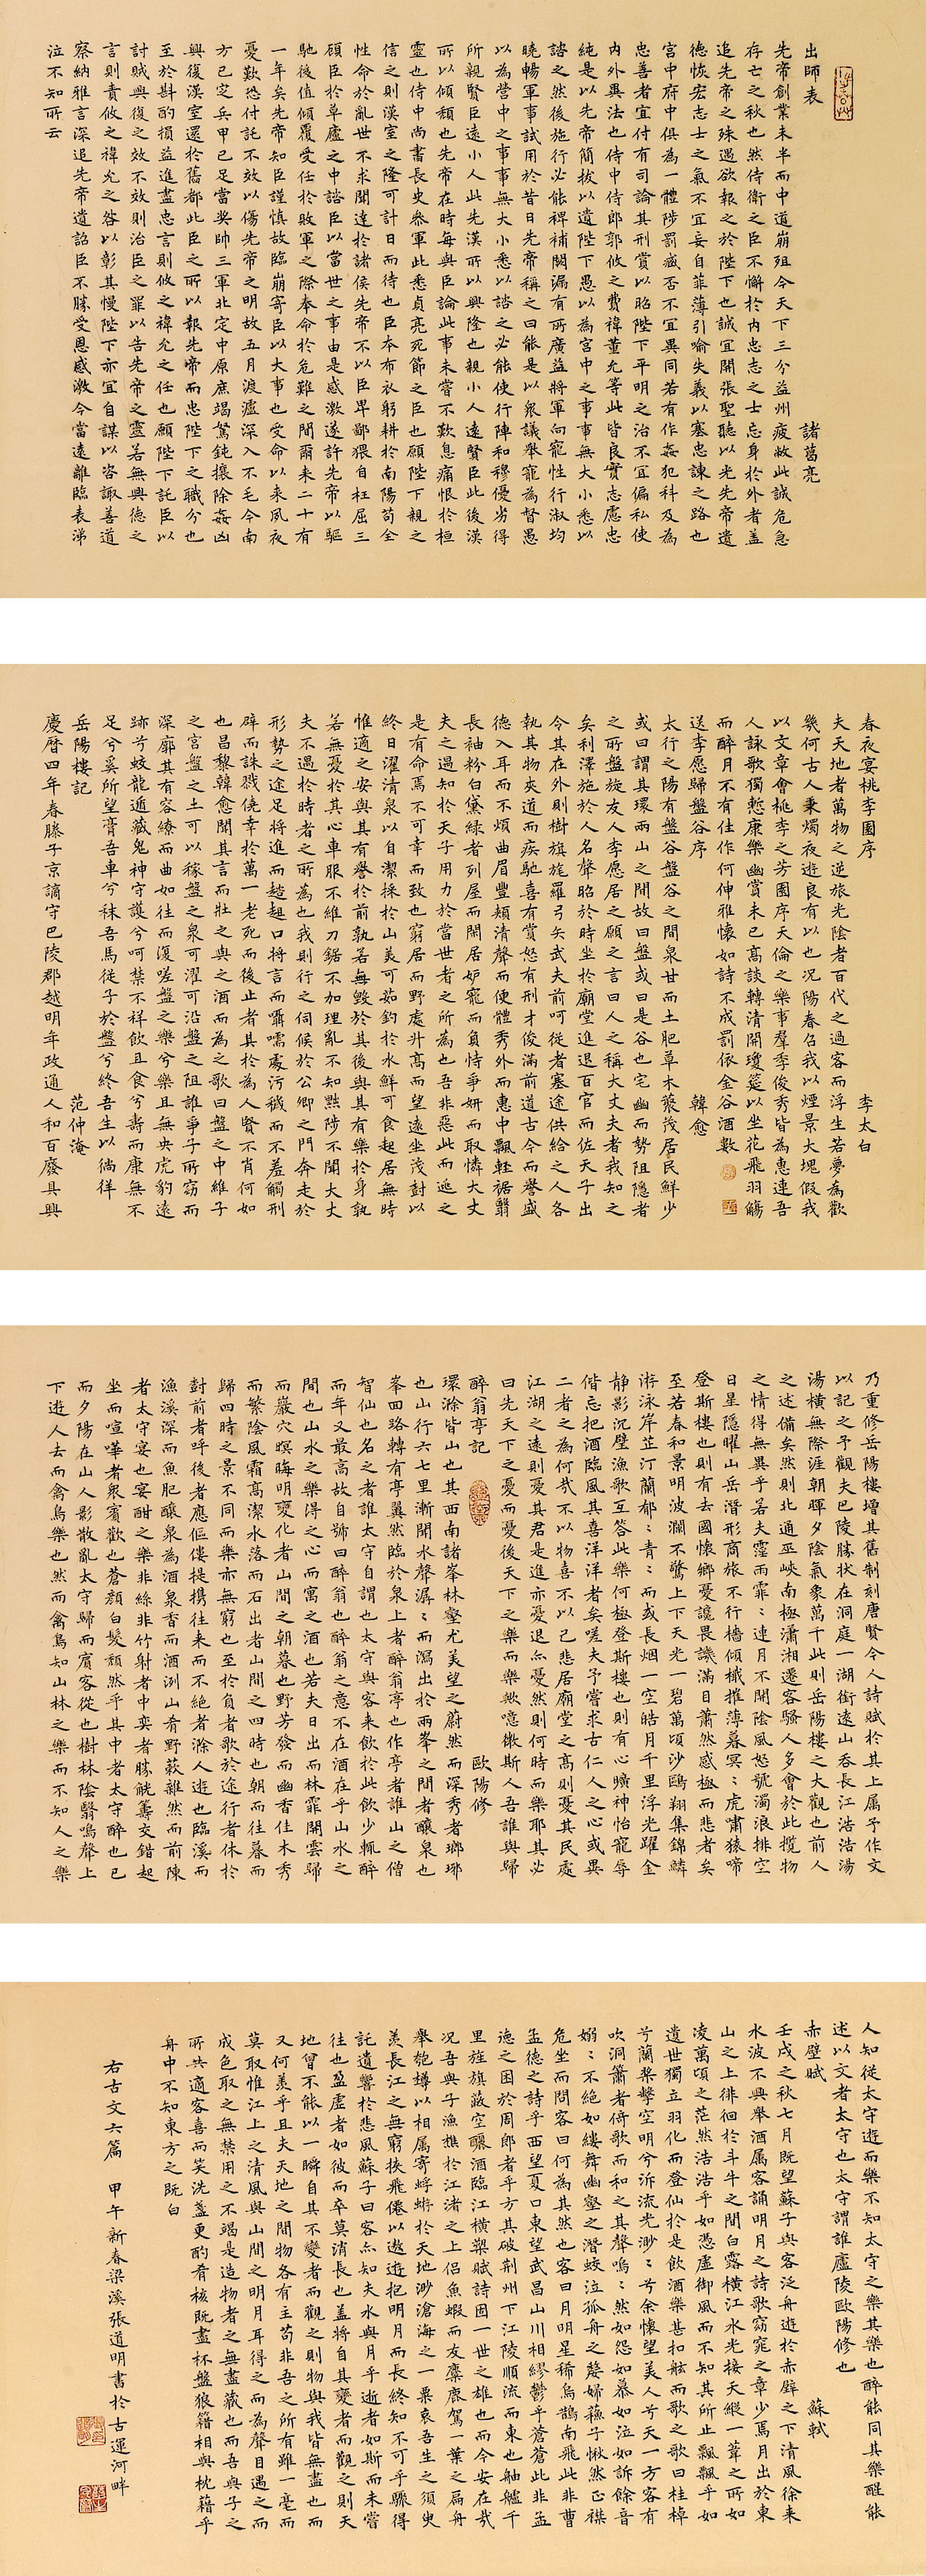 出師表 諸葛亮
先帝創業未半而中道崩殂今天下三分益州疲敝此誠危急
存亡之秋也然侍衛之臣不懈於內忠志之士忘身於外者蓋
追先帝之殊遇欲報之於陛下也誠宜開張聖聽以光先帝遺
德恢宏志士之氣不宜妄自菲薄引喻失義以塞忠諫之路也
宮中府中俱為一體陟罰臧否不宜異同若有作姦犯科及為
忠善者宜付有司論其刑賞以昭陛下平明之治不宜偏私使
內外異法也侍中侍郎郭攸之費禕董允等此皆良實志慮忠
純是以先帝簡拔以遺陛下愚以為宮中之事事無大小悉以
諮之然後施行必能裨補闕漏有所廣益將軍向寵性行淑均
曉暢軍事試用於昔日先帝稱之曰能是以眾議舉寵為督愚
以為營中之事事無大小悉以諮之必能使行陣和穆優劣得
所親賢臣遠小人此先漢所以興隆也親小人遠賢臣此後漢
所以傾頹也先帝在時每與臣論此事未嘗不歎息痛恨於桓
靈也侍中尚書長史參軍此悉貞亮死節之臣也願陛下親之
信之則漢室之隆可計日而待也臣本布衣躬耕於南陽苟全
性命於亂世不求聞達於諸侯先帝不以臣卑鄙猥自枉屈三
顧臣於草廬之中諮臣以當世之事由是感激遂許先帝以驅
馳後值傾覆受任於敗軍之際奉命於危難之間爾來二十有
一年矣先帝知臣謹慎故臨崩寄臣以大事也受命以來夙夜
憂歎恐付託不效以傷先帝之明故五月渡瀘深入不毛今南
方已定兵甲已足當獎帥三軍北定中原庶竭駑鈍攘除姦凶
興復漢室還於舊都此臣之所以報先帝而忠陛下之職分也
至於斟酌損益進盡忠言則攸之禕允之任也願陛下託臣以
討賊興復之效不效則治臣之罪以告先帝之靈若無興德之
言則責攸之禕允之咎以彰其慢陛下亦宜自謀以咨諏善道
察納雅言深追先帝遺詔臣不勝受恩感激今當遠離臨表涕
泣不知所云
春夜宴桃李園序 李太白
夫天地者萬物之逆旅光陰者百代之過客而浮生若夢為歡
幾何古人秉燭夜遊良有以也況陽春召我以煙景大塊假我
以文章會桃李之芳園序天倫之樂事羣季俊秀皆為惠連吾
人詠歌獨慙康樂幽賞未已高談轉清開瓊筵以坐花飛羽觴
而醉月不有佳作何伸雅懷如詩不成罰依金谷酒數
送李愿歸盤谷序 韓愈
太行之陽有盤谷盤谷之間泉甘而土肥草木藂茂居民鮮少
或曰謂其環兩山之間故曰盤或曰是谷也宅幽而勢阻隱者
之所盤旋友人李愿居之愿之言曰人之稱大丈夫者我知之
矣利澤施於人名聲昭於時坐於廟堂進退百官而佐天子出
令其在外則樹旗旄羅弓矢武夫前呵從者塞途供給之人各
執其物夾道而疾馳喜有賞怒有刑才俊滿前道古今而譽盛
德入耳而不煩曲眉豐頰清聲而便體秀外而惠中飄輕裾翳
長袖粉白黛綠者列屋而閒居妒寵而負恃爭妍而取憐大丈
夫之遇知於天子用力於當世者之所為也吾非惡此而逃之
是有命焉不可幸而致也窮居而野處升高而望遠坐茂樹以
終日濯清泉以自潔採於山美可茹釣於水鮮可食起居無時
惟適之安與其有譽於前孰若無毀於其後與其有樂於身孰
若無憂於其心車服不維刀鋸不加理亂不知黜陟不聞大丈
夫不遇於時者之所為也我則行之伺候於公卿之門奔走於
形勢之途足將進而趑趄口將言而囁嚅處污穢而不羞觸刑
辟而誅戮僥幸於萬一老死而後止者其於為人賢不肖何如
也昌黎韓愈聞其言而壯之與之酒而為之歌曰盤之中維子
之宮盤之土可以稼盤之泉可濯可沿盤之阻誰爭子所窈而
深廓其有容繚而曲如往而復嗟盤之樂兮樂且無央虎豹遠
跡兮蛟龍遁藏鬼神守護兮呵禁不祥飲且食兮壽而康無不
足兮奚所望膏吾車兮秣吾馬從子於盤兮終吾生以徜徉
岳陽樓記 范仲淹
慶曆四年春滕子京謫守巴陵郡越明年政通人和百廢具興
乃重修岳陽樓增其舊制刻唐賢今人詩賦於其上属予作文
以記之予觀夫巴陵勝狀在洞庭一湖銜遠山吞長江浩浩湯
湯橫無際涯朝暉夕陰氣象萬千此則岳陽樓之大觀也前人
之述備矣然則北通巫峽南極瀟湘遷客騷人多會於此攬物
之情得無異乎若夫霪雨霏〻連月不開陰風怒號濁浪排空
日星隱曜山岳潛形商旅不行檣傾檝摧薄暮冥〻虎嘯猿啼
登斯樓也則有去國懷鄉憂讒畏譏滿目蕭然感極而悲者矣
至若春和景明波瀾不驚上下天光一碧萬頃沙鷗翔集錦鱗
游泳岸芷汀蘭郁〻青〻而或長烟一空皓月千里浮光躍金
靜影沉璧漁歌互答此樂何極登斯樓也則有心曠神怡寵辱
偕忘把酒臨風其喜洋洋者矣嗟夫予嘗求古仁人之心或異
二者之為何哉不以物喜不以己悲居廟堂之高則憂其民處
江湖之遠則憂其君是進亦憂退亦憂然則何時而樂耶其必
曰先天下之憂而憂後天下之樂而樂歟噫微斯人吾誰與歸
醉翁亭記 歐陽修
環滁皆山也其西南諸峯林壑尤美望之蔚然而深秀者瑯琊
也山行六七里漸聞水聲潺〻而瀉出於兩峯之間者釀泉也
峯回路轉有亭翼然臨於泉上者醉翁亭也作亭者誰山之僧
智仙也名之者誰太守自謂也太守與客來飲於此飲少輒醉
而年又最高故自號曰醉翁也醉翁之意不在酒在乎山水之
間也山水之樂得之心而寓之酒也若夫日出而林霏開雲歸
而巖穴暝晦明變化者山間之朝暮也野芳發而幽香佳木秀
而繁陰風霜高潔水落而石出者山間之四時也朝而往暮而
歸四時之景不同而樂亦無窮也至於負者歌於途行者休於
樹前者呼後者應傴僂提攜往來而不絕者滁人遊也臨溪而
漁溪深而魚肥釀泉為酒泉香而酒洌山肴野蔌雜然而前陳
者太守宴也宴酣之樂非絲非竹射者中奕者勝觥籌交錯起
坐而喧嘩者衆賓歡也蒼顏白髮頹然乎其中者太守醉也已
而夕陽在山人影散亂太守歸而賓客從也樹林陰翳鳴聲上
下遊人去而禽鳥樂也然而禽鳥知山林之樂而不知人之樂
人知從太守遊而樂不知太守之樂其樂也醉能同其樂醒能
述以文者太守也太守謂誰廬陵歐陽修也
赤壁賦 蘇軾
壬戌之秋七月既望蘇子與客泛舟遊於赤壁之下清風徐來
水波不興舉酒属客誦明月之詩歌窈窕之章少焉月出於東
山之上徘徊於斗牛之間白露橫江水光接天縱一葦之所如
凌萬頃之茫然浩浩乎如憑虛御風而不知其所止飄飄乎如
遺世獨立羽化而登仙於是飲酒樂甚扣舷而歌之歌曰桂棹
兮蘭槳擊空明兮泝流光渺〻兮余懷望美人兮天一方客有
吹洞簫者倚歌而和之其聲嗚〻然如怨如慕如泣如訴餘音
嫋〻不絕如縷舞幽壑之潛蛟泣孤舟之嫠婦蘇子愀然正襟
危坐而問客曰何為其然也客曰月明星稀烏鵲南飛此非曹
孟德之詩乎西望夏口東望武昌山川相繆鬱乎蒼蒼此非孟
德之困於周郎者乎方其破荆州下江陵順流而東也舳艫千
里旌旗蔽空釃酒臨江橫槊賦詩固一世之雄也而今安在哉
況吾與子漁樵於江渚之上侶魚蝦而友麋鹿駕一葉之扁舟
舉匏樽以相属寄蜉蝣於天地渺滄海之一粟哀吾生之須臾
羨長江之無窮挾飛僊以遨遊抱明月而長終知不可乎驟得
託遺響於悲風蘇子曰客亦知夫水與月乎逝者如斯而未嘗
往也盈虛者如彼而卒莫消長也蓋將自其變者而觀之則天
地曾不能以一瞬自其不變者而觀之則物與我皆無盡也而
又何羨乎且夫天地之間物各有主苟非吾之所有雖一毫而
莫取惟江上之清風與山間之明月耳得之而為聲目遇之而
成色取之無禁用之不竭是造物者之無盡藏也而吾與子之
所共適客喜而笑洗盞更酌肴核既盡杯盤狼籍相與枕藉乎
舟中不知東方之既白
右古文六篇 甲午新春梁溪張道明書於古運河畔